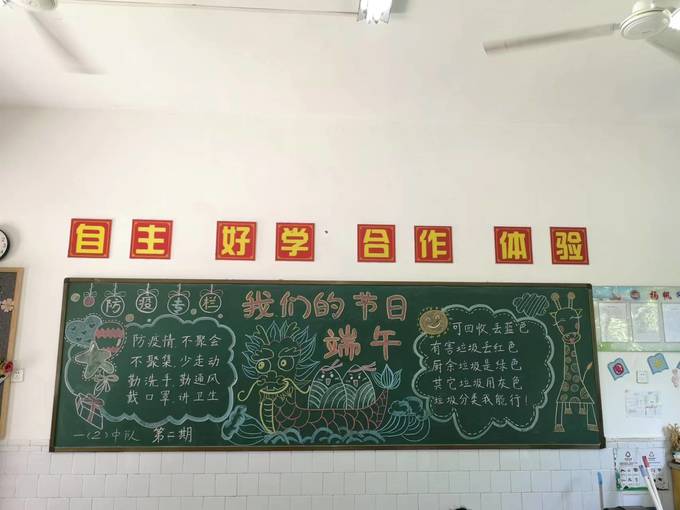 自主 好学 合作 体验
防疫专栏
防疫情 不聚会
不聚集 少走动
勤洗手 勤通风
戴口罩 讲卫生
一(2)中队 第二期
我们的节日
端午
可回收 去蓝色
有害垃圾去红色
厨余垃圾是绿色
其它垃圾用灰色
垃圾分类我能行!
扬帆